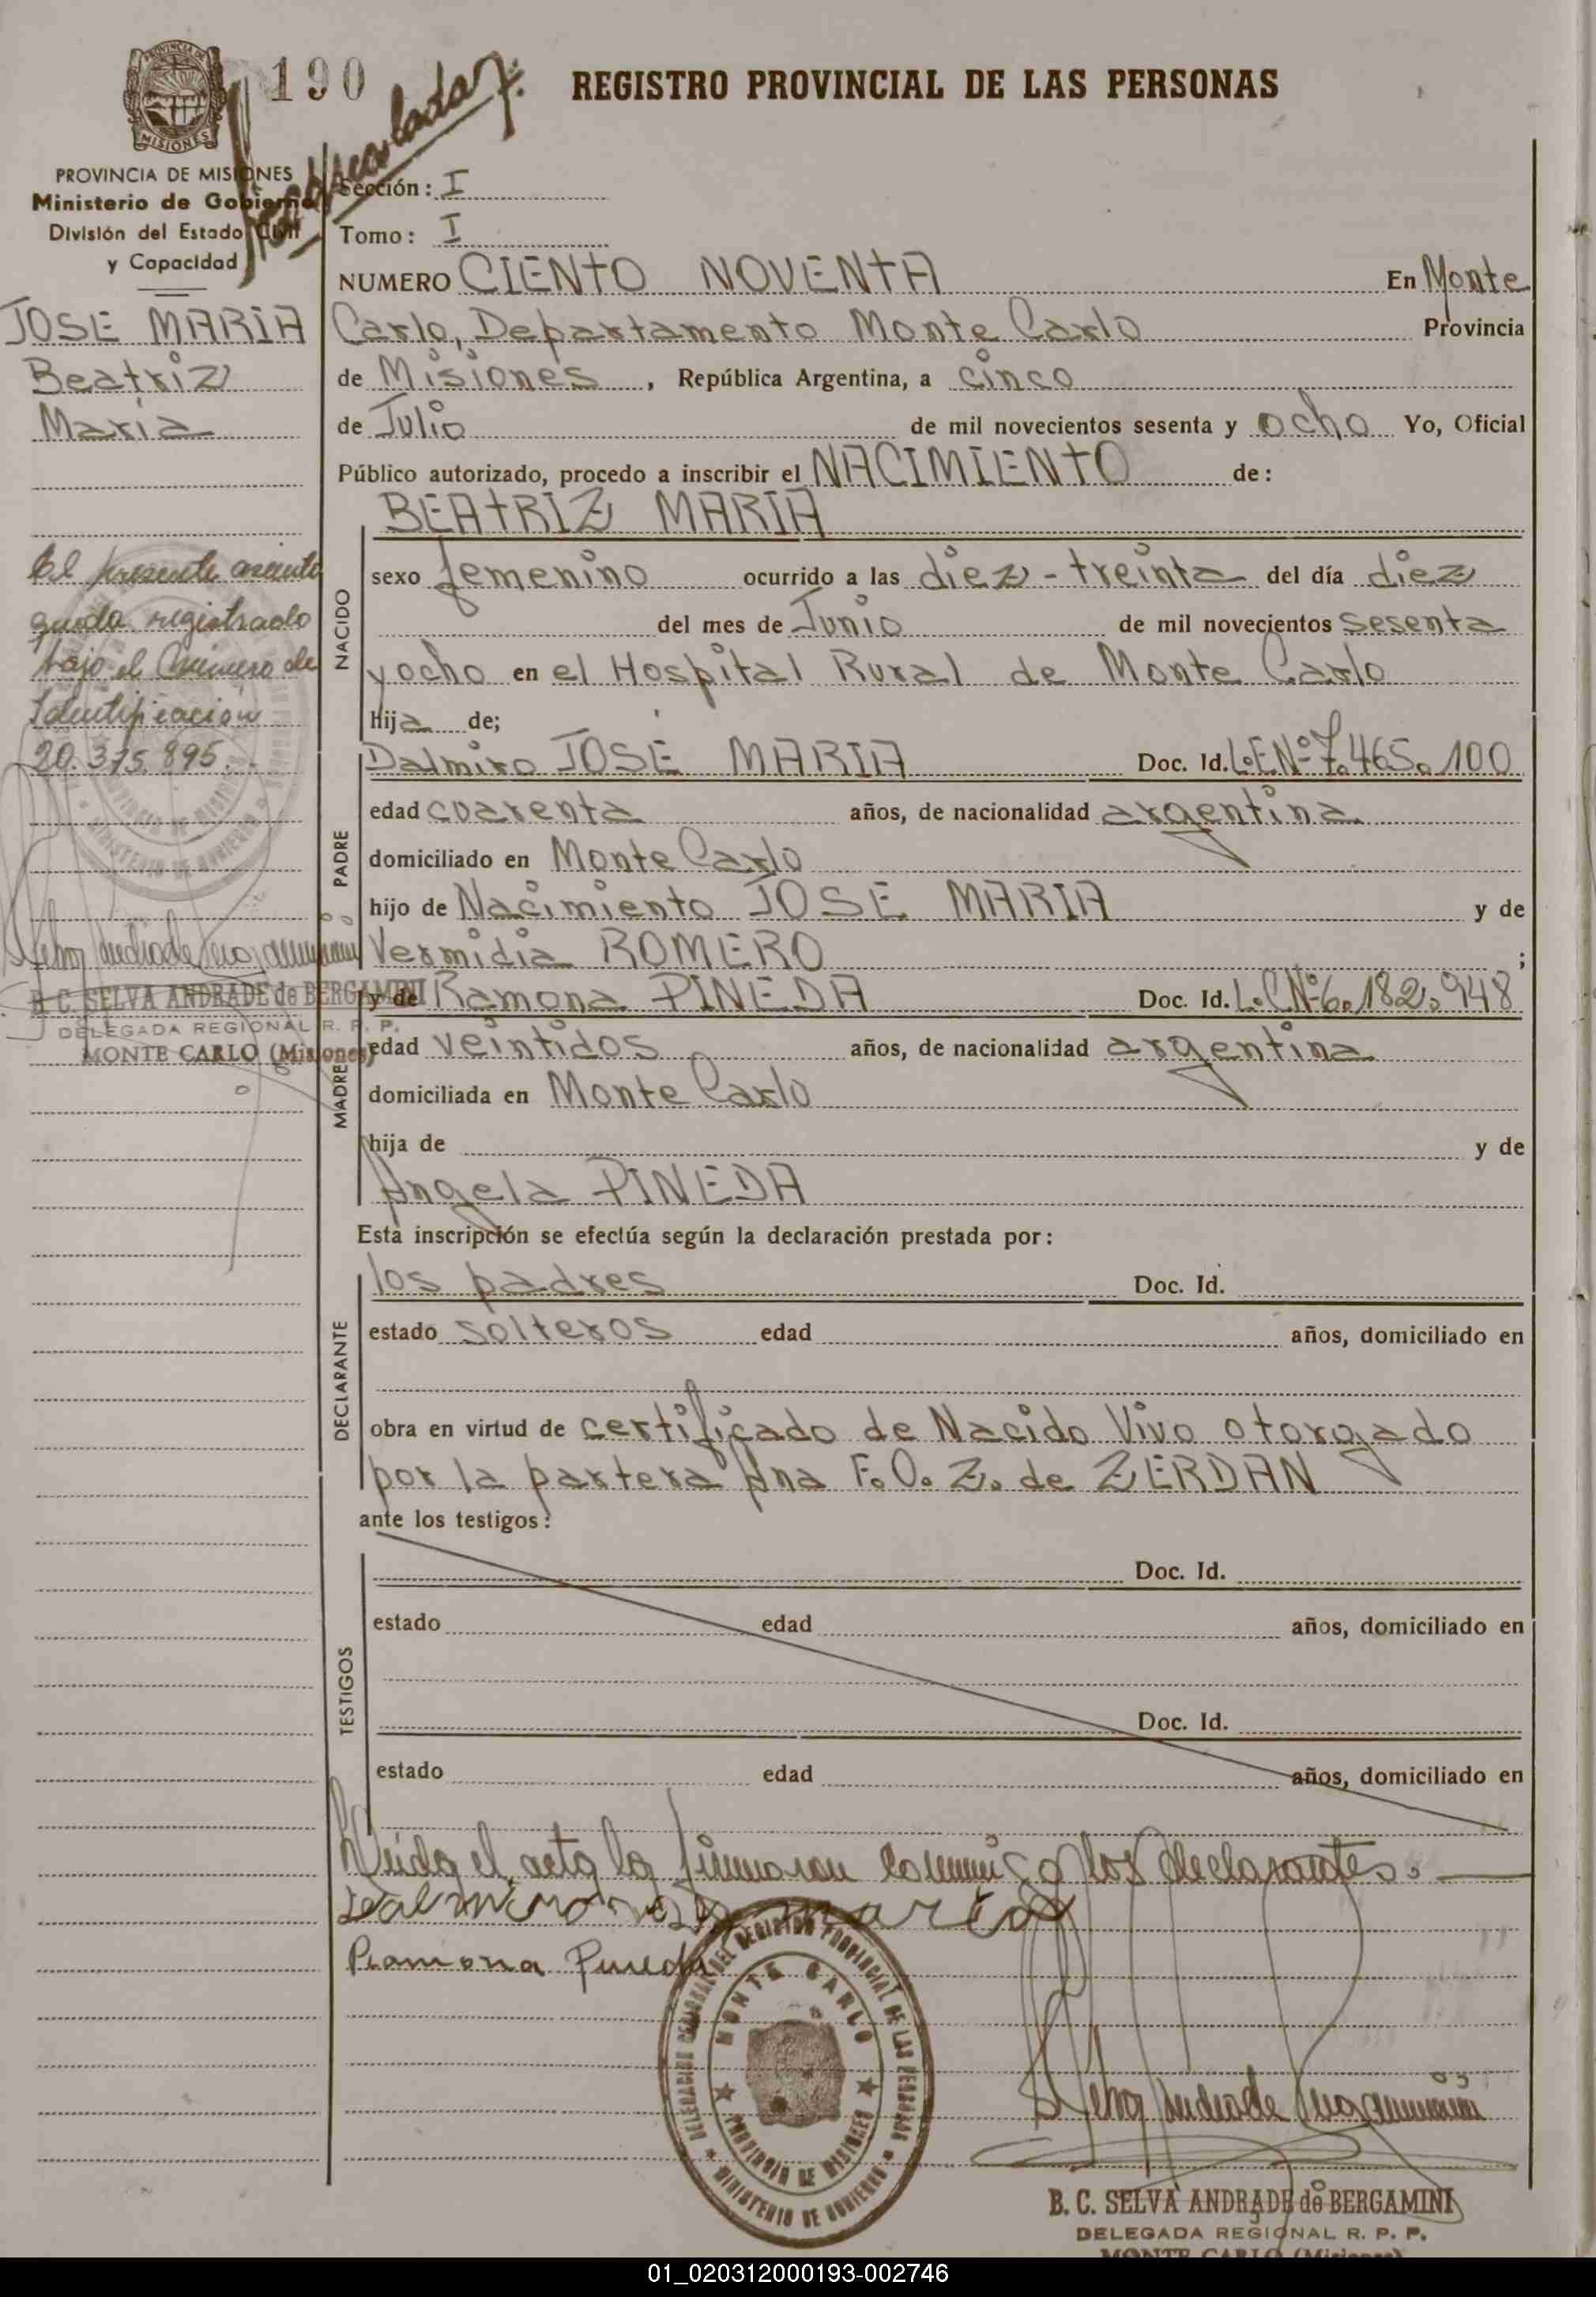 190
REGISTRO PROVINCIAL DE LAS PERSONAS
PROVINCIA DE MISIONES
MISIONES
Ministerio de Gobierno
División del Estado Civil
y Capacidad
Sección: I
Tomo: I
NUMERO CIENTO NOVENTA En Monte
JOSE MARIA
Carlo, Departamento Monte Carlo Provincia
Beatriz
de Misiones, República Argentina, a cinco
María
de Julio de mil novecientos sesenta y ocho Yo, Oficial
Público autorizado, procedo a inscribir el NACIMIENTO de:
BEATRIZ MARIA
NACIDO
sexo femenino ocurrido a las diez-treinta del día diez
del mes de Junio de mil novecientos sesenta
y ocho en el Hospital Rural de Monte Carlo
Hija de;
El presente asiento
queda registrado
bajo el Número de
Identificación
20.375.895.
PADRE
Dalmiro JOSE MARIA Doc. Id. L.E.Nº 7.465.100
edad cuarenta años, de nacionalidad argentina
domiciliado en Monte Carlo
hijo de Nacimiento JOSE MARIA y de
Vermidia ROMERO ;
B. C. SELVA ANDRADE de BERGAMINI
DELEGADA REGIONAL R. P. P.
MONTE CARLO (Misiones)
MADRE
y de Ramona PINEDA Doc. Id. L.C.Nº 6.182.948
edad veintidos años, de nacionalidad argentina
domiciliada en Monte Carlo
hija de y de
Angela PINEDA
Esta inscripción se efectúa según la declaración prestada por:
DECLARANTE
los padres Doc. Id.
estado solteros edad años, domiciliado en
obra en virtud de certificado de Nacido Vivo otorgado
por la partera dna F. O. Z. de ZERDAN
ante los testigos:
TESTIGOS
Doc. Id.
estado edad años, domiciliado en
Doc. Id.
estado edad años, domiciliado en
Leída el acta la firmaron conmigo los declarantes.
Dalmiro Jose Maria
Ramona Pineda
DELEGACION REGIONAL DEL REGISTRO PROVINCIAL DE LAS PERSONAS
MONTE CARLO
PROVINCIA DE MISIONES
MINISTERIO DE GOBIERNO
B. C. SELVA ANDRADE de BERGAMINI
DELEGADA REGIONAL R. P. P.
MONTE CARLO (Misiones)
01_020312000193-002746